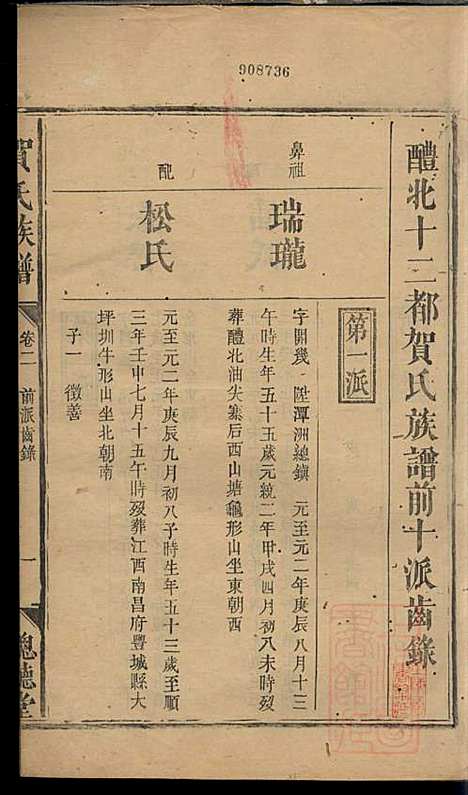 908736
醴北十二都賀氏族譜前十派齒錄
第一派
鼻祖
瑞瓏
字開幾陞潭洲總鎮元至元二年庚辰八月十三
午時生年五十五歲元統二年甲戌四月初八未時歿
葬醴北油尖寨后西山塘龜形山坐東朝西
配
松氏
元至元二年庚辰九月初八子時生年五十三歲至順
三年壬申七月十五午時歿葬江西南昌府豐城縣大
坪圳牛形山坐北朝南
子一 徵善
賀氏族譜
卷二 前派齒錄
一
聰聽堂